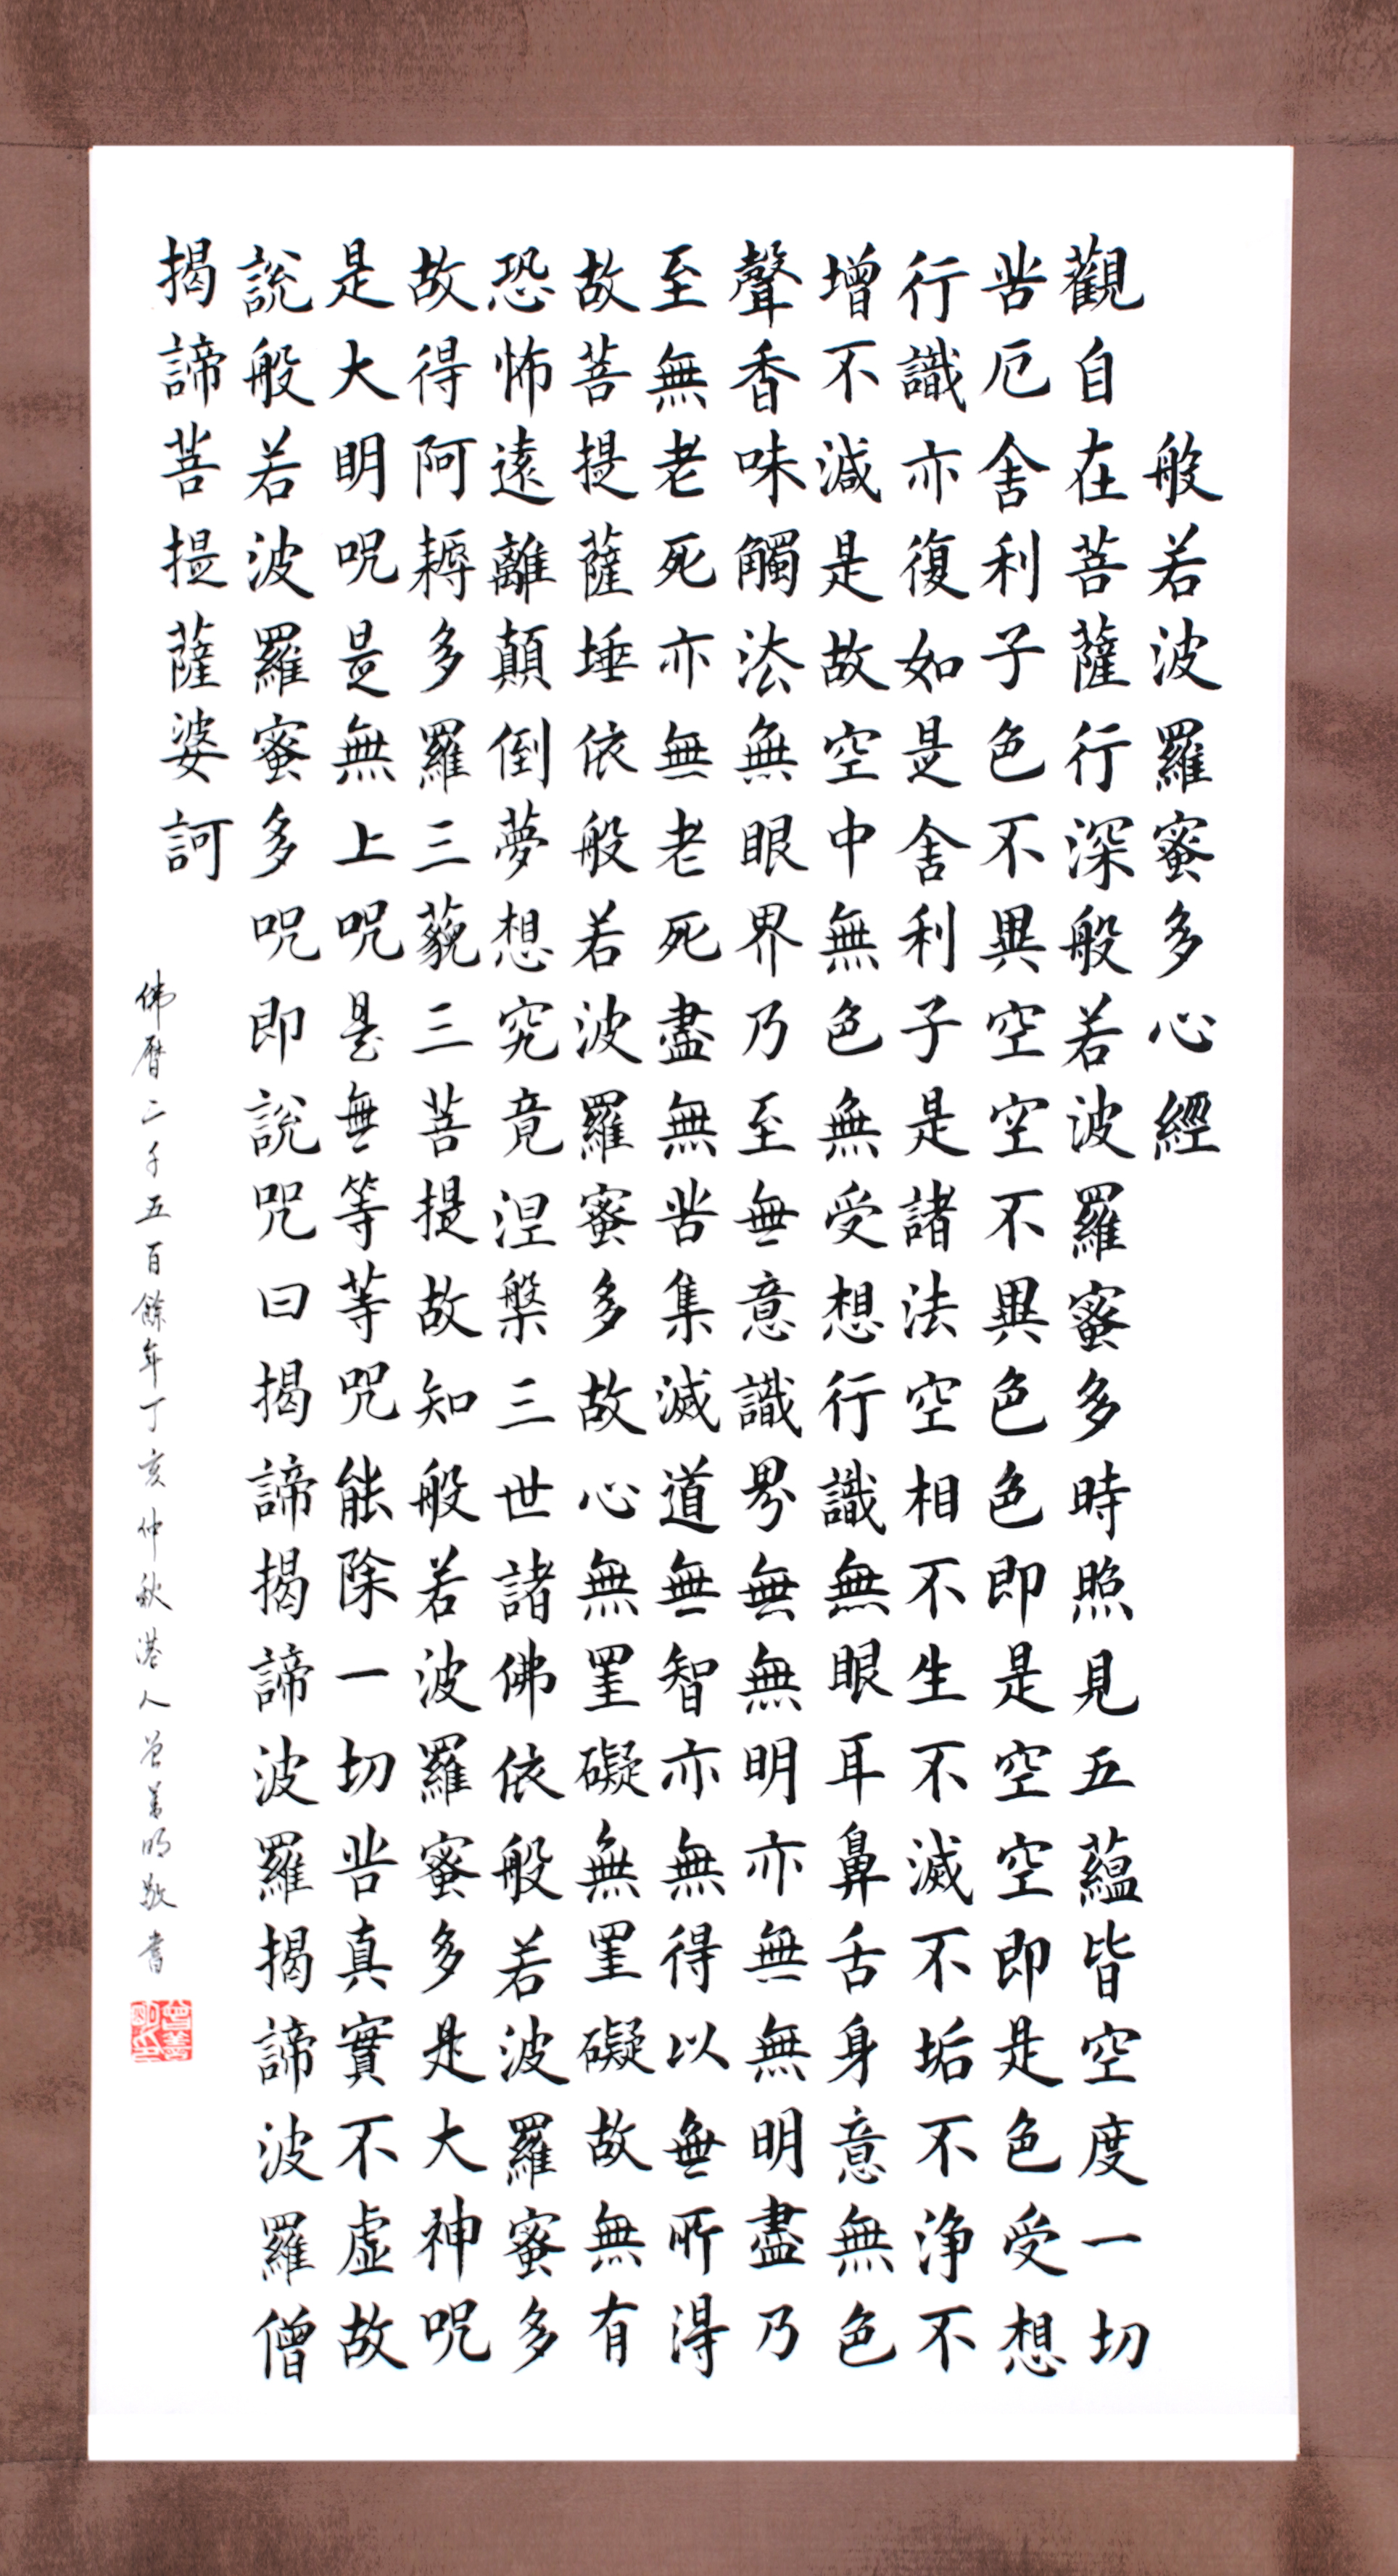 般若波羅蜜多心經
觀自在菩薩行深般若波羅蜜多時照見五蘊皆空度一切
苦厄舍利子色不異空空不異色色即是空空即是色受想
行識亦復如是舍利子是諸法空相不生不滅不垢不淨不
增不減是故空中無色無受想行識無眼耳鼻舌身意無色
聲香味觸法無眼界乃至無意識界無無明亦無無明盡乃
至無老死亦無老死盡無苦集滅道無智亦無得以無所得
故菩提薩埵依般若波羅蜜多故心無罣礙無罣礙故無有
恐怖遠離顛倒夢想究竟涅槃三世諸佛依般若波羅蜜多
故得阿耨多羅三藐三菩提故知般若波羅蜜多是大神咒
是大明咒是無上咒是無等等咒能除一切苦真實不虛故
說般若波羅蜜多咒即說咒曰揭諦揭諦波羅揭諦波羅僧
揭諦菩提薩婆訶
佛曆二千五百餘年丁亥仲秋港人曾善明敬書
曾善明印